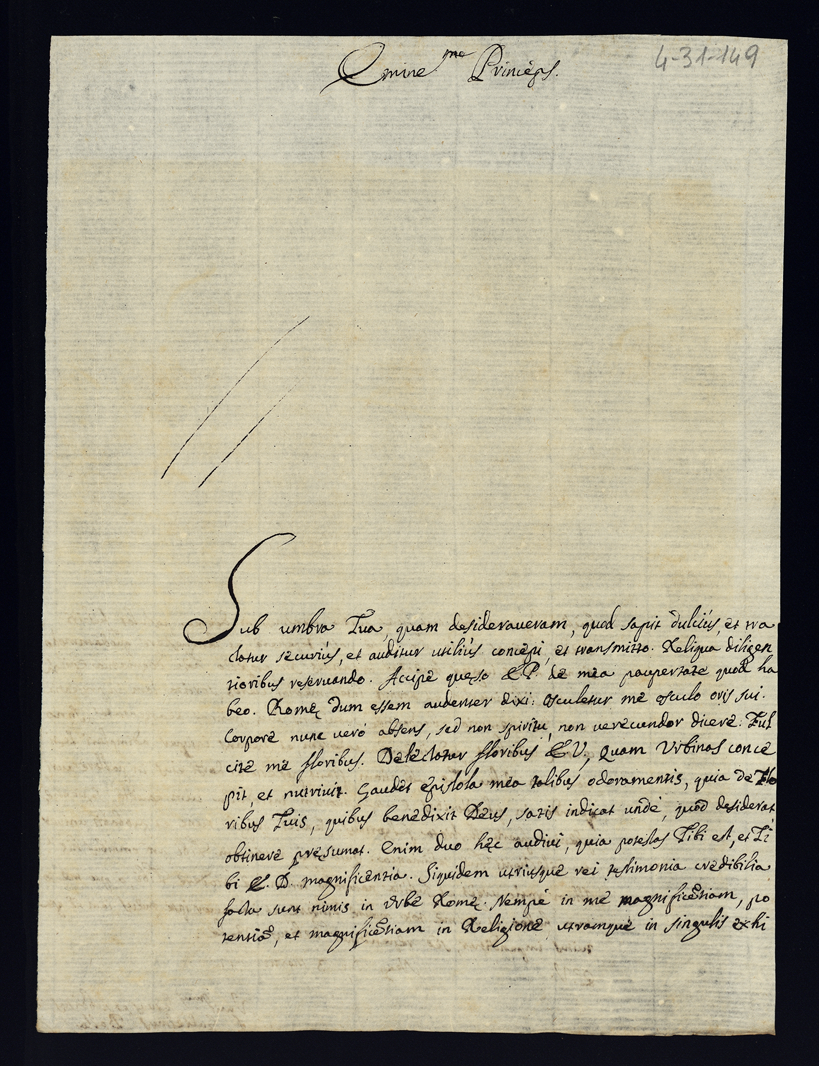 4-31-149
Emine^me Princeps.
Sub umbra Tua, quam desideraveram, quod sapit dulciùs, et tra
ctatur securiùs, et auditur utiliùs concepi, et transmitto. Reliqua diligen
tioribus reservando. Accipe quęso E.P. de mea paupertate quod ha
beo. Romę dum essem audenter dixi: Osculetur me osculo oris sui.
Corpore nunc verò absens, sed non spiritu, non verecundor dicere. Ful
cite me floribus. Delectatur floribus E.V. quam Urbinas conce
pit, et nutrivit. Gaudet Epistola mea talibus odoramentis, quia de Flo
ribus Tuis, quibus benedixit Deus, satis indicat unde, quod desiderat
obtinere pręsumat. Enim duo hęc audivi, quia potestas Tibi est, et Ti
bi E. D. magnificentia. Siquidem utriusque rei testimonia credibilia
facta sunt nimis in Urbe Romę. Nempè in me magnificẽtiam, po
tentiã, et magnificẽtiam in Religione utramque in singulis exhi